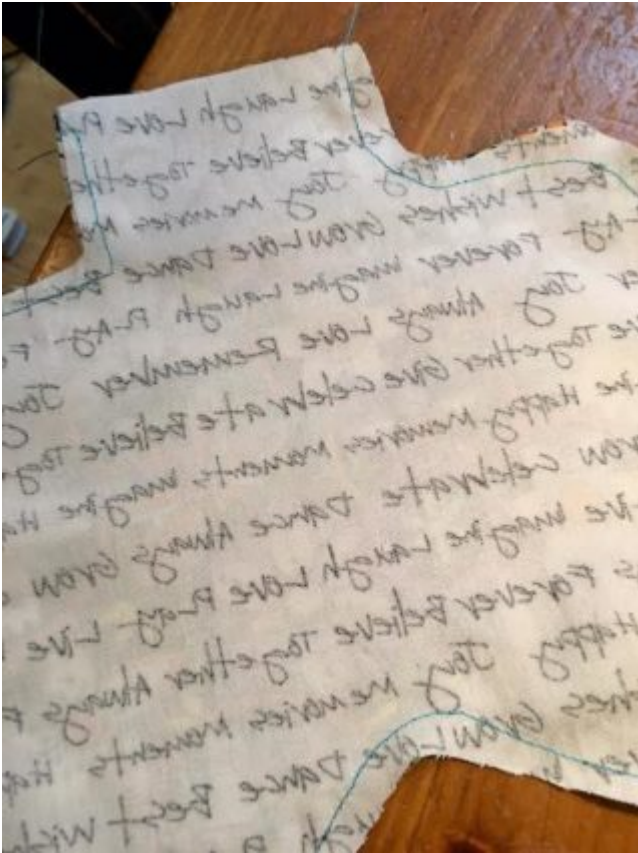 gine Laugh Love Pl
ever Believe Togethe
ments ppy Joy Memories Mo
Best Wishes Grow Love Dance Best
Play Forever Imagine Laugh Play F
er Joy Always Love Remember Joy
ve Together Give Celebrate Believe Tog
ne Happy Memories Moments Imagine Ha
row Celebrate Dance Always Grow
ve Imagine Laugh Love Play Live
s Forever Believe Together Always F
Happy Joy Memories Moments Ha
shes Grow Love Dance Best Wish
ver ugh